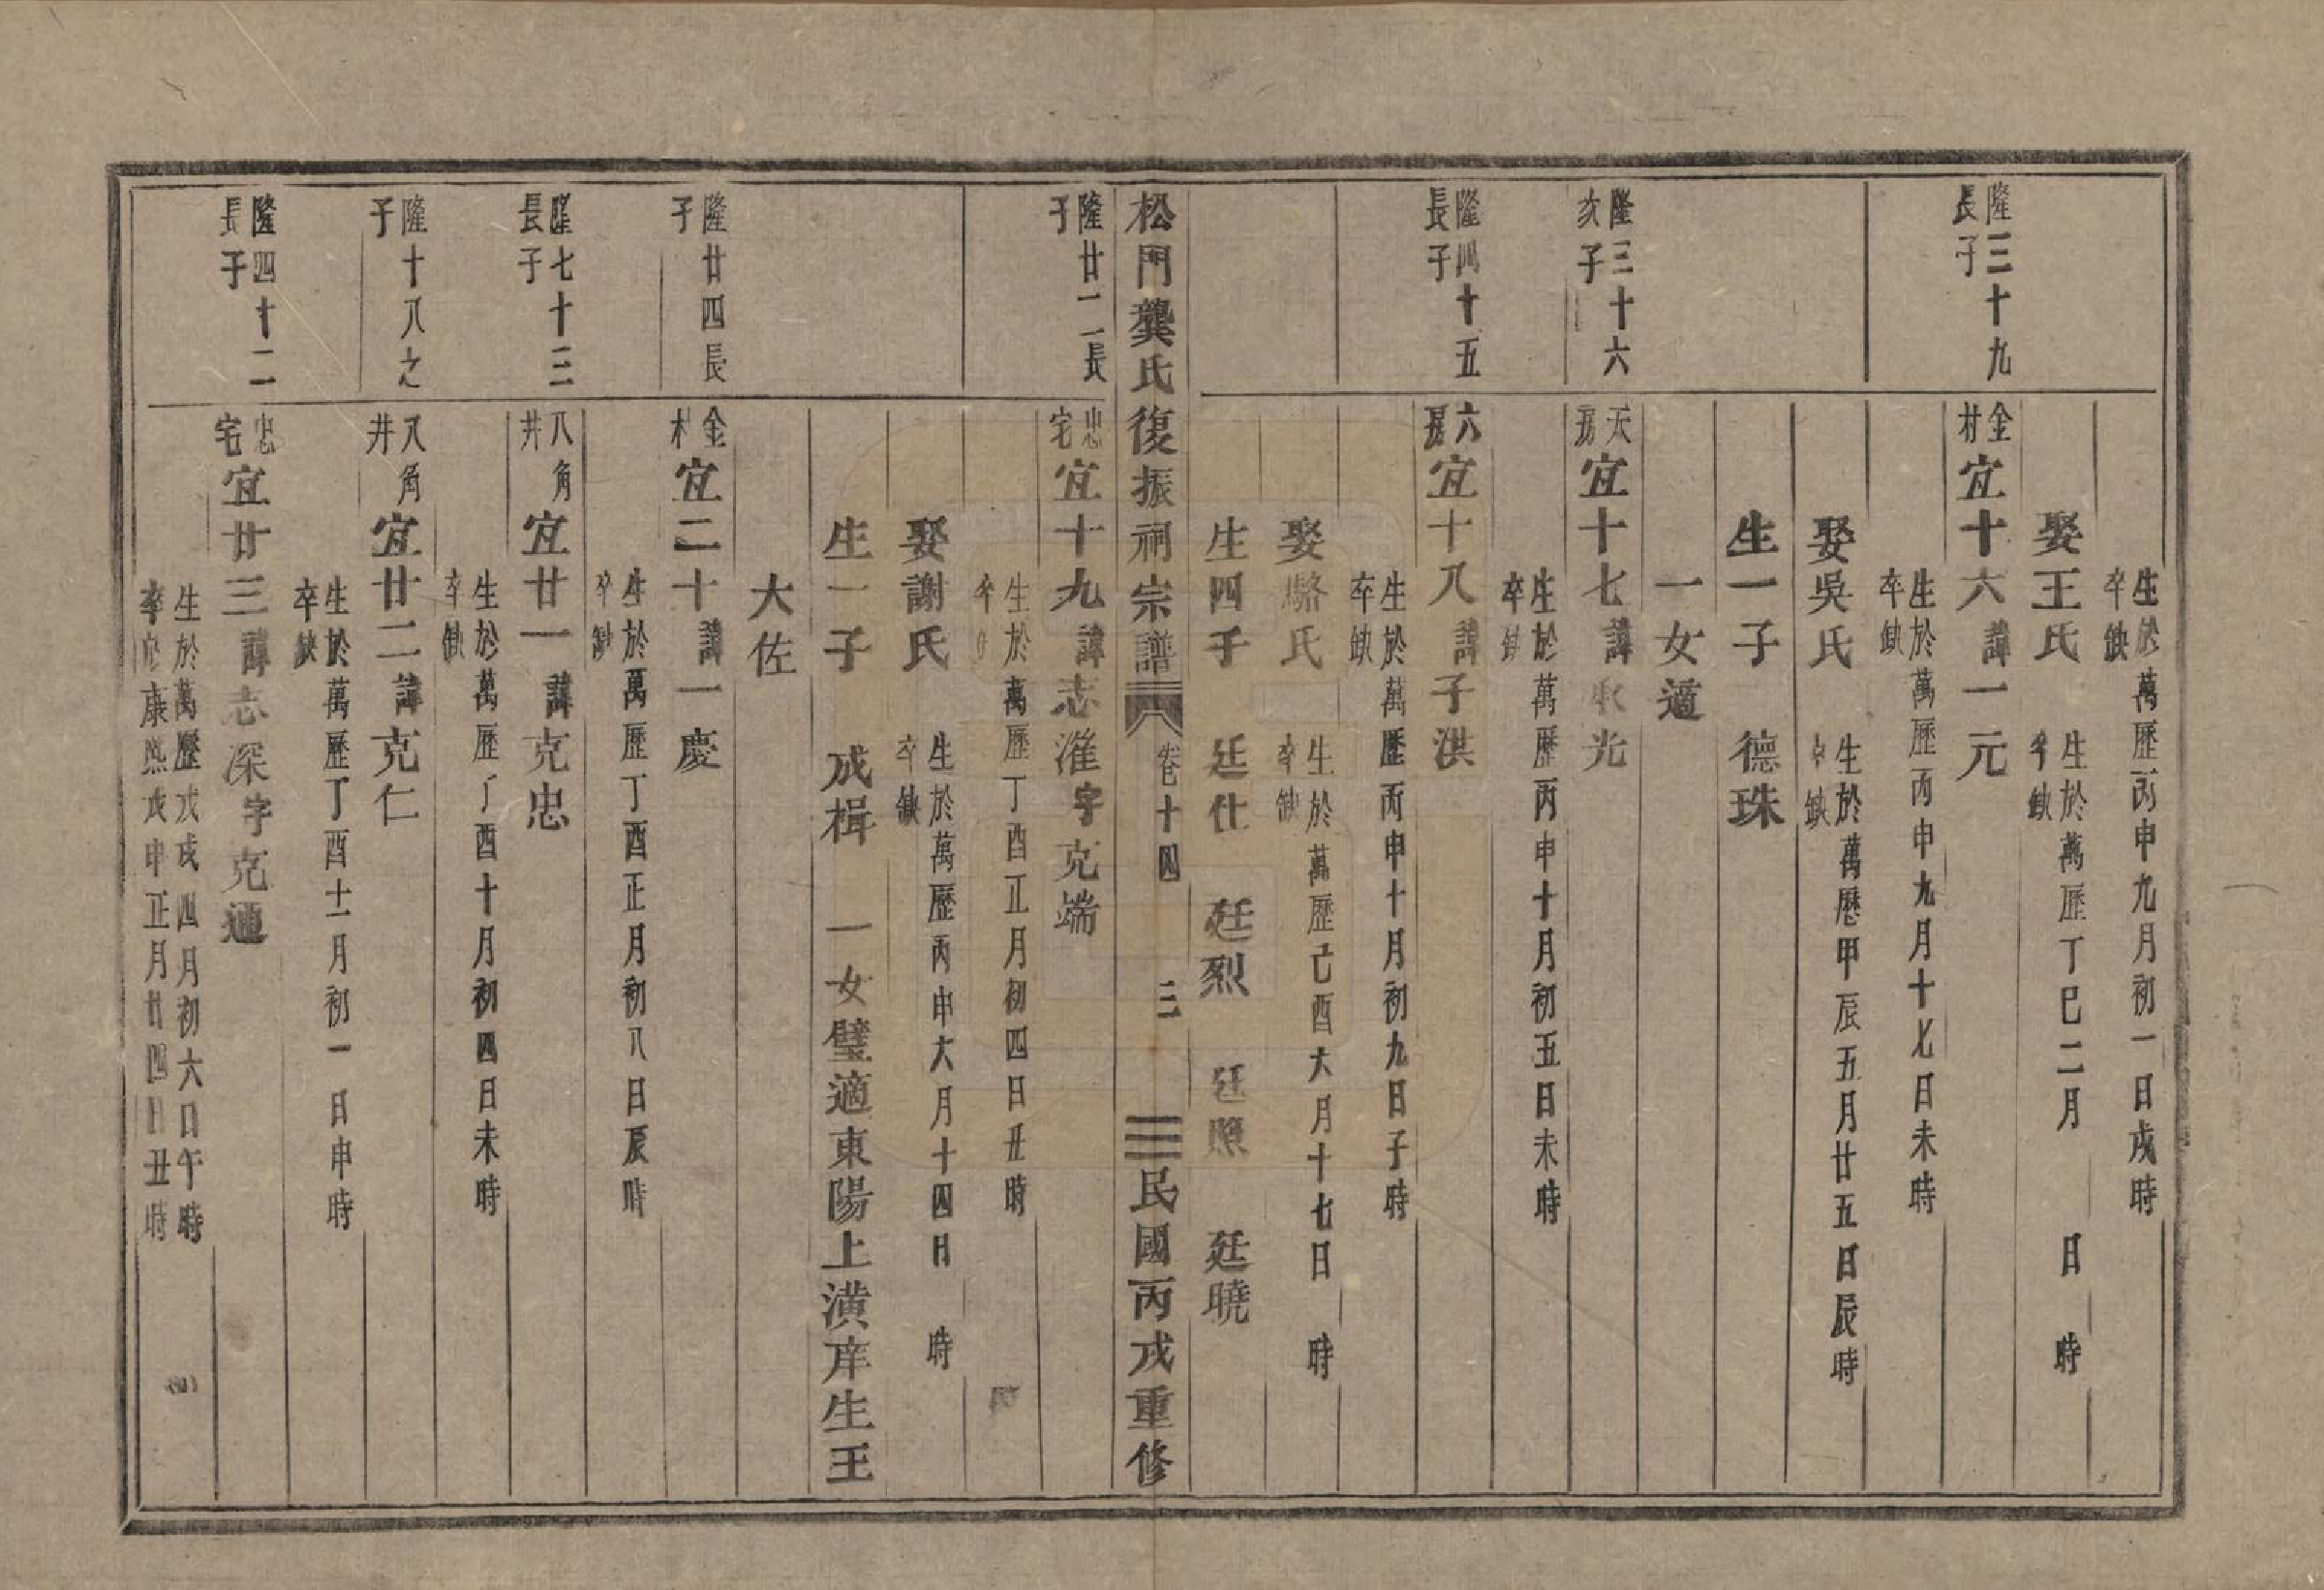 生於萬歷丙申九月初一日戌時
卒缺
娶王氏
生於萬歷丁巳二月 日 時
卒缺
隆三十九
長子
金村
宜十六諱一元
生於萬歷丙申九月十七日未時
卒缺
娶吳氏
生於萬歷甲辰五月廿五日辰時
卒缺
生一子 德珠
一女適
隆三十六
次子
天房
宜十七諱 光
生於萬歷丙申十月初五日未時
卒缺
隆四十五
長子
六房
宜十八諱子洪
生於萬歷丙申十月初九日子時
卒缺
娶駱氏
生於萬歷己酉六月十七日 時
卒缺
生四子 廷仕 廷烈 廷照 廷曉
松門龔氏復振祠宗譜 卷十四 三 民國丙戌重修
隆廿一長
子
忠宅
宜十九諱志濰字克端
生於萬歷丁酉正月初四日丑時
卒
娶謝氏
生於萬歷丙申六月十四日 時
卒缺
生一子 成楫 一女璧適東陽上潢庠生王
大佐
隆廿四長
子
金村
宜二十諱一慶
生於萬歷丁酉正月初八日辰時
卒缺
隆七十三
長子
八角井
宜廿一諱克忠
生於萬歷丁酉十月初四日未時
卒缺
隆十八之
子
八角井
宜廿二諱克仁
生於萬歷丁酉十一月初一日申時
卒缺
隆四十二
長子
忠宅
宜廿三諱志深字克通
生於萬歷戊戌四月初六日午時
卒於康熙戊申正月廿四日丑時